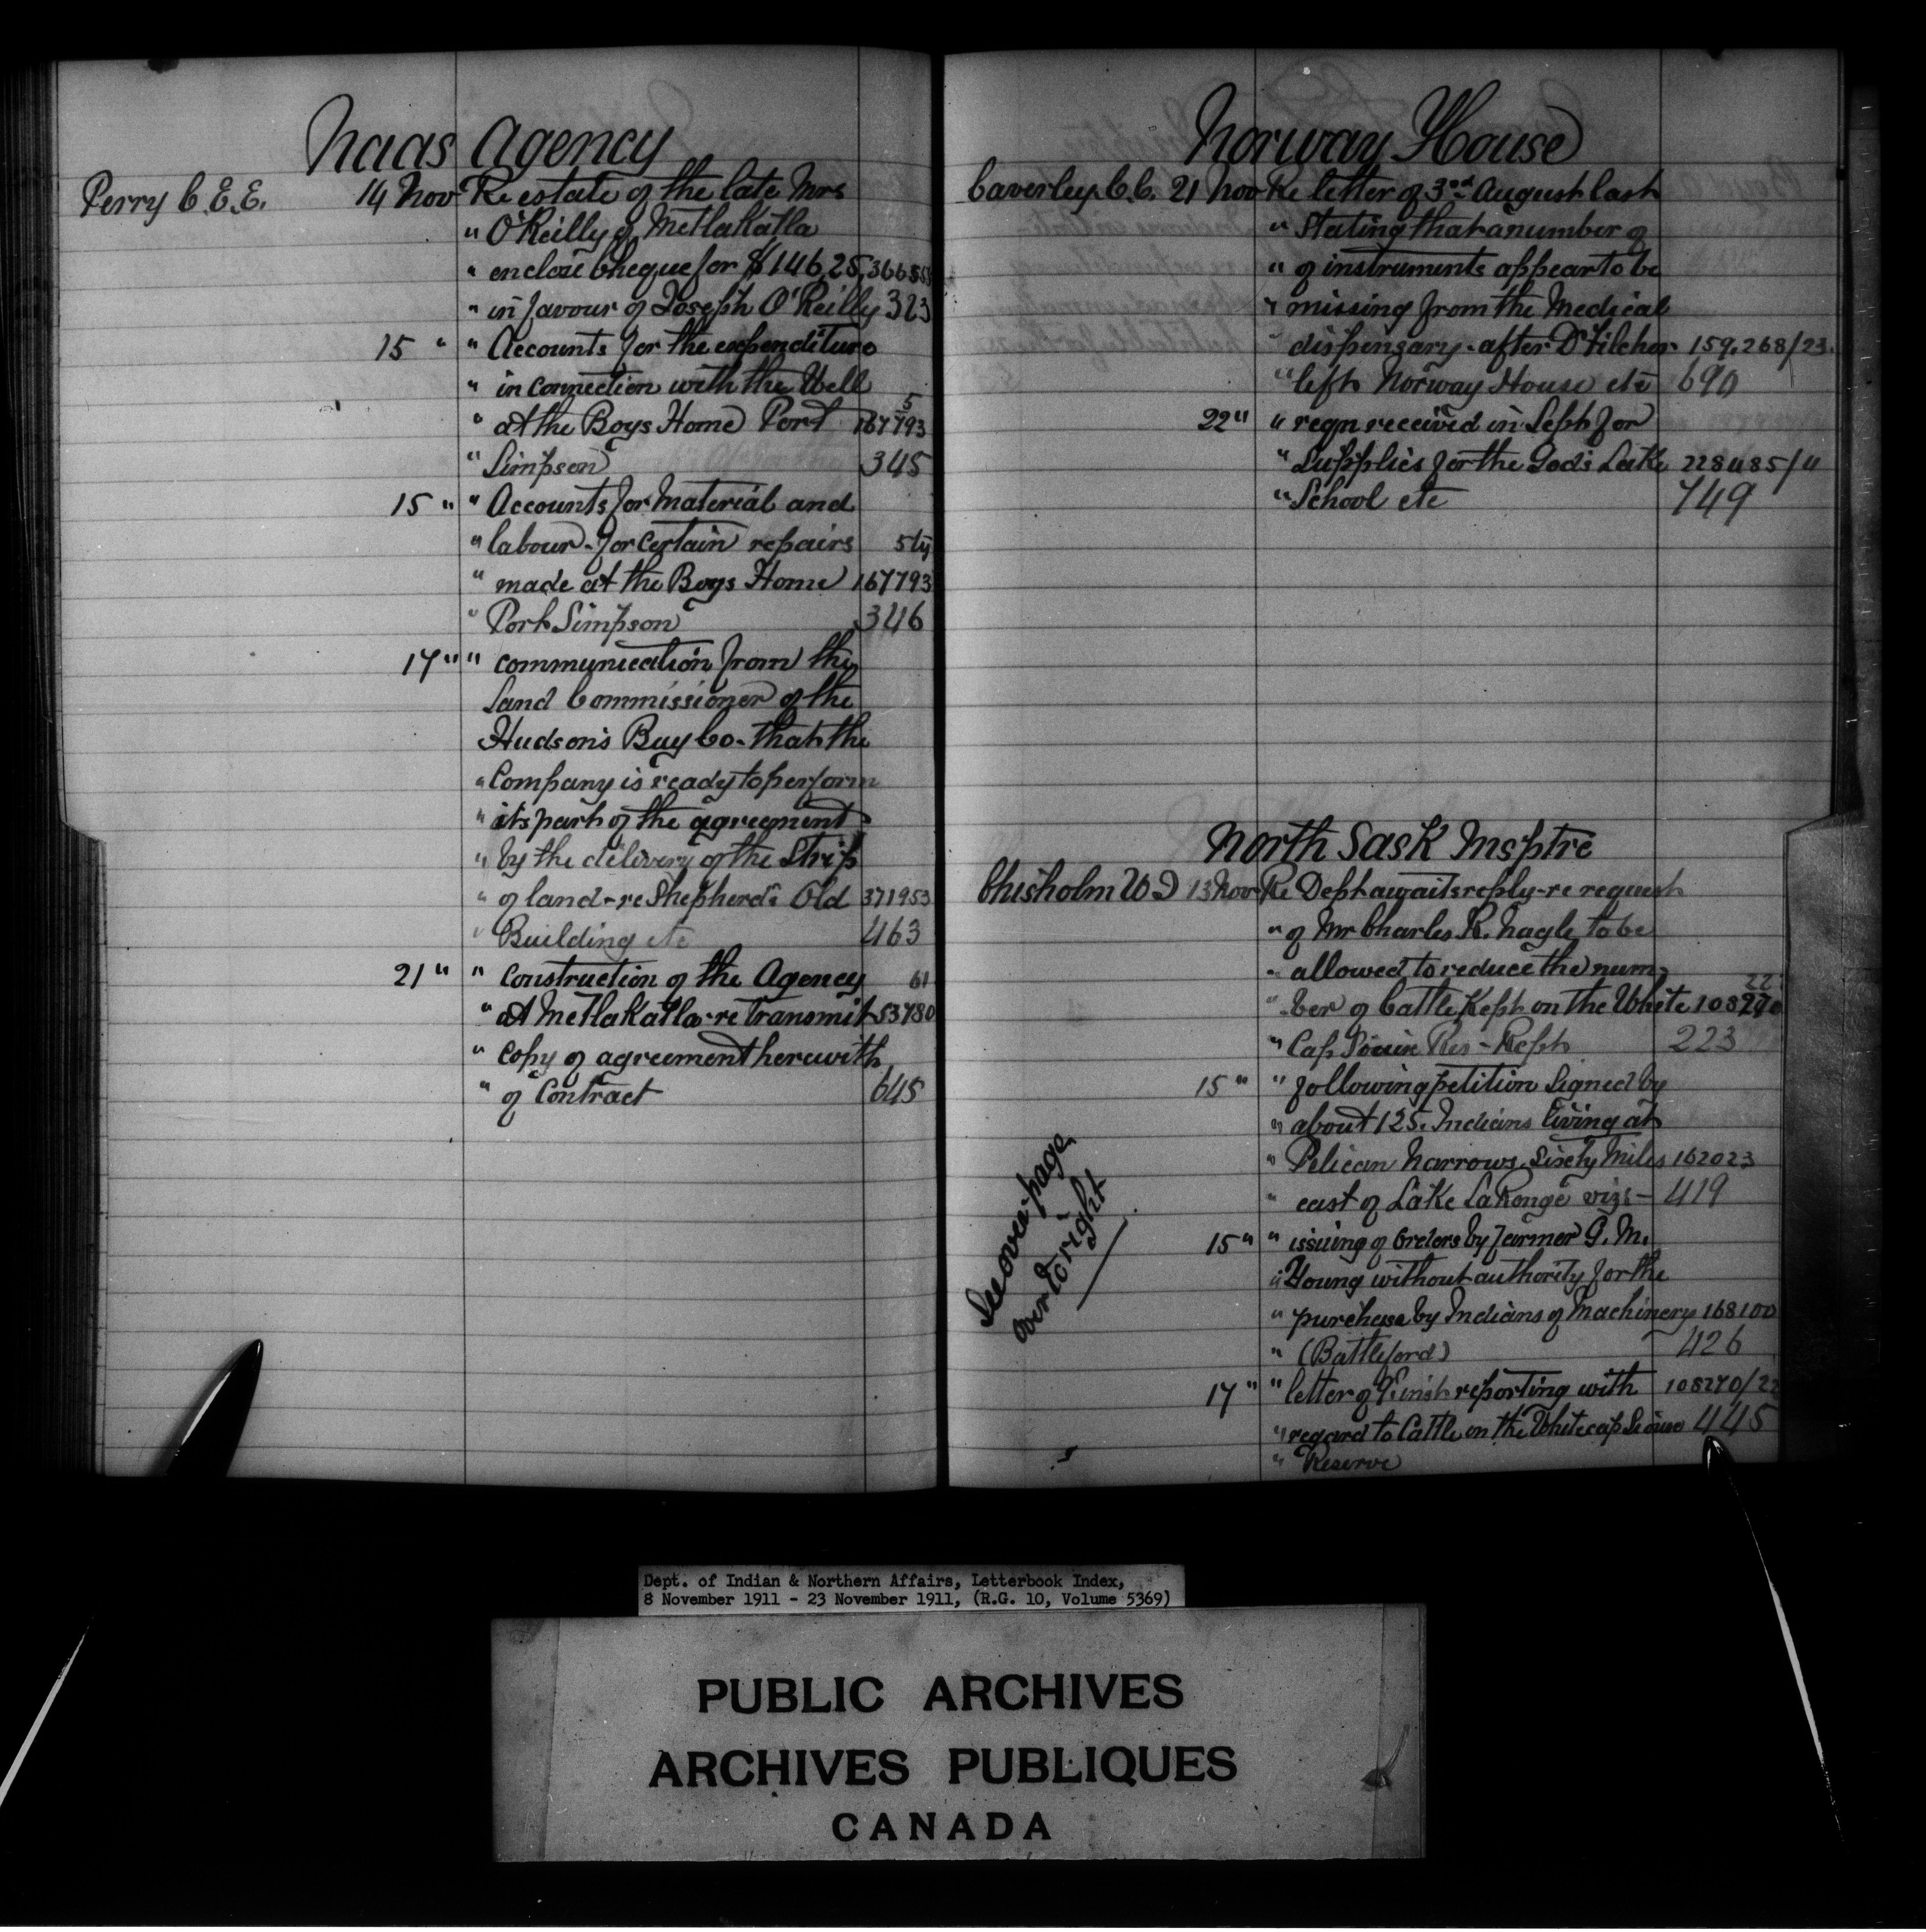 Naas Agency
Perry C.E.E. 14 Nov Re estate of the late Mrs
" O'Reilly of Metlakatla
" enclose Cheque for $146,25, 36655
" in favour of Joseph O'Reilly 323
15 " " Accounts for the expenditure
" in connection with the Well 5
" at the Boys Home Port 167793
" Simpson 345
15 " " Accounts for Material and
" labour - for certain repairs 5
" made at the Boys Home 167793
" Port Simpson 346
17 " " communication from the
Land Commissioner of the
Hudson's Bay Co - that the
" Company is ready to perform
" its part of the agreement
" by the delivery of the Strip
" of land - re Shepherd's Old 371953
" Building etc 463
21 " " Construction of the Agency 61
" at Metlakatla - re Transmit 53780
" copy of agreement herewith
" of Contract 645
Norway House
Caverley C.C. 21 Nov Re letter of 3rd August last
" Stating that a number of
" of instruments appear to be
" missing from the Medical
" dispensary - after Dr Filcher 159,268/23
" left Norway House etc 690
22 " " reqn received in Sept for
" Supplies for the God's Lake 228485/4
" School etc 749
North Sask Insptre
Chisholm W J 13 Nov Re Dept awaits reply - re request
" of Mr Charles R. Nagle to be
" allowed to reduce the num-
22
" ber of Cattle Kept on the White 108270
" Cap Sioux Res - Rept 223
15 " " following petition Signed by
" about 125. Indians living at
" Pelican Narrows, Sixty Miles 162023
" east of Lake LaRonge viz :- 419
15 " " issuing of Orders by farmer G. M.
" Young without authority for the
" purchase by Indians of Machinery 168100
" (Battleford) 426
17 " " letter of inst reporting with 108270/22
" regard to Cattle on the Whitecap Sioux 445
" Reserve
See over page
over to right
Dept. of Indian & Northern Affairs, Letterbook Index,
8 November 1911 - 23 November 1911, (R.G. 10, Volume 5369)
PUBLIC ARCHIVES
ARCHIVES PUBLIQUES
CANADA